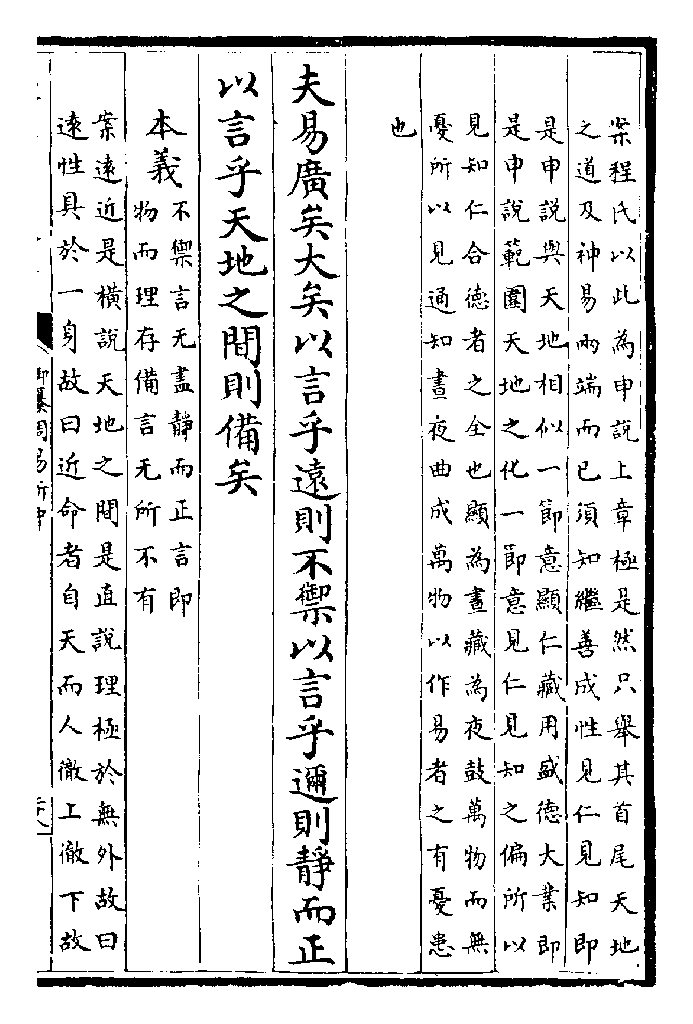 案程氏以此為申說上章極是然只舉其首尾天地
之道及神易兩端而已須知繼善成性見仁見知即
是申說與天地相似一節意顯仁藏用盛德大業即
是申說範圍天地之化一節意見仁見知之偏所以
見知仁合德者之全也顯為晝藏為夜鼓萬物而無
憂所以見通知晝夜曲成萬物以作易者之有憂患
也
夫易廣矣大矣以言乎遠則不禦以言乎邇則靜而正
以言乎天地之間則備矣
本義
不禦言无盡靜而正言即
物而理存備言无所不有
案遠近是橫說天地之間是直說理極於無外故曰
遠性具於一身故曰近命者自天而人徹上徹下故
御纂周易折中